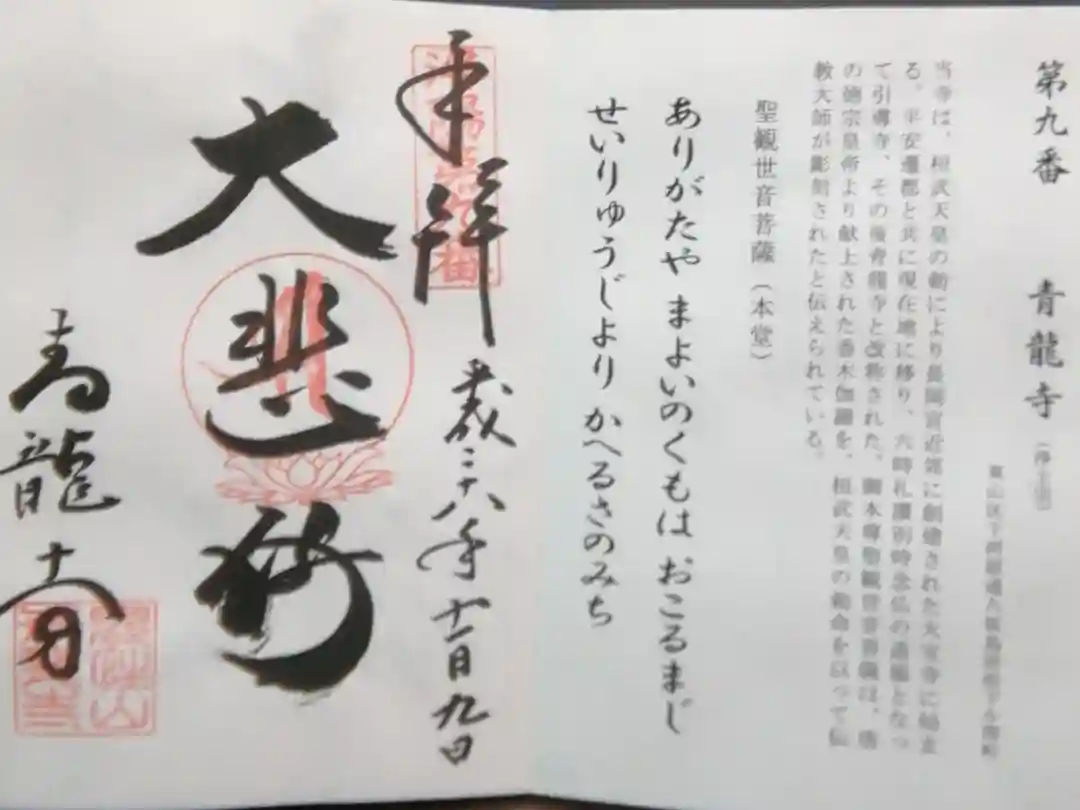 第九番 青龍寺(浄土宗)
当寺は、桓武天皇の勅により長岡京近郊に創建された太宰寺に始ま
る。平安遷都と共に現在地に移り、六時礼讃別時念仏の道場となっ
て引導寺、その後青龍寺と改称された。御本尊聖観世音菩薩は、唐
の徳宗皇帝より献上された香木伽羅を、桓武天皇の勅命を以って伝
教大師が彫刻されたと伝えられている。
聖観世音菩薩(本堂)
ありがたや まよいのくもは おこるまじ
せいりゅうじより かへるさのみち
奉拝 平成二十八年十一月九日
大悲
青龍寺